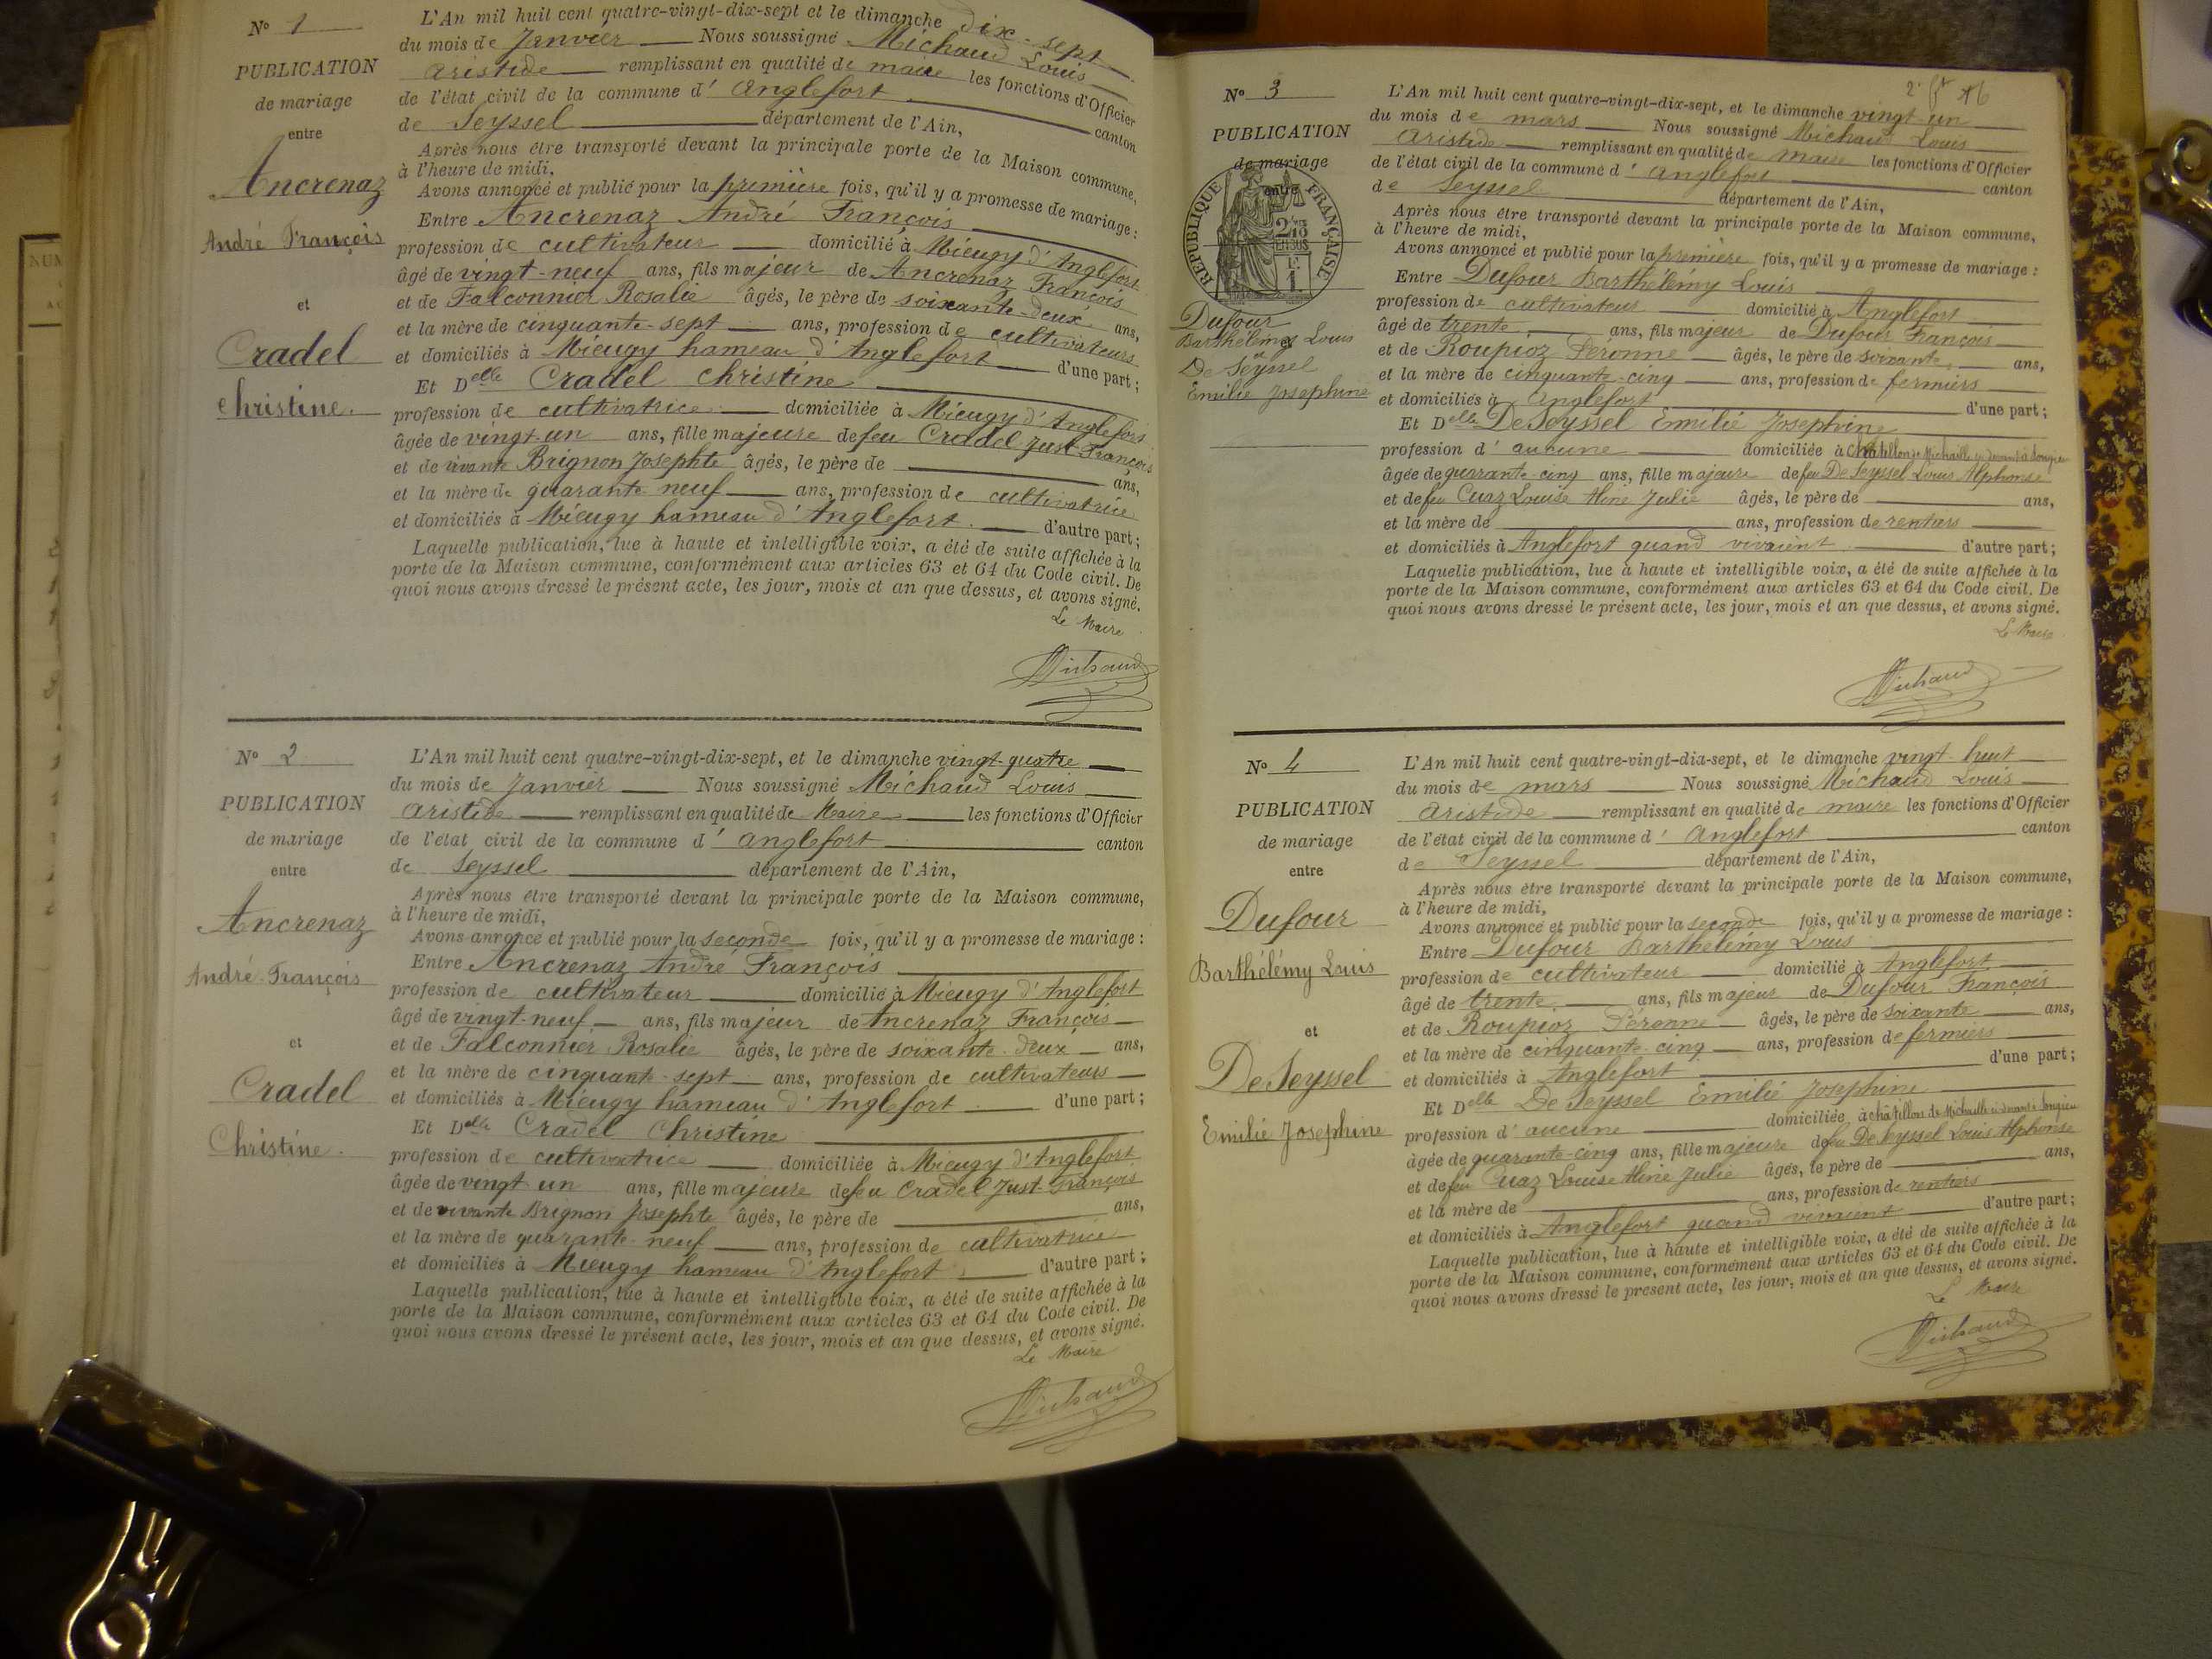 N° 1
PUBLICATION
de mariage
entre
Ancrenaz
André François
et
Cradel
Christine.
L'An mil huit cent quatre-vingt-dix-sept et le dimanche dix-sept
du mois de Janvier Nous soussigné Michaud Louis
aristide remplissant en qualité de maire les fonctions d'Officier
de l'état civil de la commune d' Anglefort canton
de Seyssel département de l'Ain,
Après nous être transporté devant la principale porte de la Maison commune,
à l'heure de midi,
Avons annoncé et publié pour la première fois, qu'il y a promesse de mariage :
Entre Ancrenaz André François
profession de cultivateur domicilié à Mieugy d'Anglefort
âgé de vingt-neuf ans, fils majeur de Ancrenaz François
et de Falconnier Rosalie âgés, le père de soixante-deux ans,
et la mère de cinquante-sept ans, profession de cultivateurs
et domiciliés à Mieugy hameau d'Anglefort d'une part ;
Et Delle Cradel Christine
profession de cultivatrice domiciliée à Mieugy d'Anglefort
âgée de vingt-un ans, fille majeure de feu Cradel Just-François
et de vivante Brignon Josephte âgés, le père de ans,
et la mère de quarante-neuf ans, profession de cultivatrice
et domiciliés à Mieugy hameau d'Anglefort. d'autre part ;
Laquelle publication, lue à haute et intelligible voix, a été de suite affichée à la
porte de la Maison commune, conformément aux articles 63 et 64 du Code civil. De
quoi nous avons dressé le présent acte, les jour, mois et an que dessus, et avons signé.
Le Maire
Michaud
N° 2
PUBLICATION
de mariage
entre
Ancrenaz
André-François
et
Cradel
Christine.
L'An mil huit cent quatre-vingt-dix-sept, et le dimanche vingt-quatre
du mois de Janvier Nous soussigné Michaud Louis
Aristide remplissant en qualité de Maire les fonctions d'Officier
de l'état civil de la commune d' Anglefort canton
de Seyssel département de l'Ain,
Après nous être transporté devant la principale porte de la Maison commune,
à l'heure de midi,
Avons annoncé et publié pour la seconde fois, qu'il y a promesse de mariage :
Entre Ancrenaz André François
profession de cultivateur domicilié à Mieugy d'Anglefort
âgé de vingt-neuf ans, fils majeur de Ancrenaz François
et de Falconnier Rosalie âgés, le père de soixante-deux ans,
et la mère de cinquante-sept ans, profession de cultivateurs
et domiciliés à Mieugy hameau d'Anglefort d'une part ;
Et Delle Cradel Christine
profession de cultivatrice domiciliée à Mieugy d'Anglefort
âgée de vingt un ans, fille majeure de feu Cradel Just-François
et de vivante Brignon Josephte âgés, le père de ans,
et la mère de quarante-neuf ans, profession de cultivatrice
et domiciliés à Mieugy hameau d'Anglefort. d'autre part ;
Laquelle publication, lue à haute et intelligible voix, a été de suite affichée à la
porte de la Maison commune, conformément aux articles 63 et 64 du Code civil. De
quoi nous avons dressé le présent acte, les jour, mois et an que dessus, et avons signé.
Le Maire
Michaud
N° 3
PUBLICATION
de mariage
entre
RÉPUBLIQUE FRANÇAISE
Dufour
Barthélémy Louis
et
De Seyssel
Emilie Josephine
L'An mil huit cent quatre-vingt-dix-sept, et le dimanche vingt-un
du mois de mars Nous soussigné Michaud Louis
Aristide remplissant en qualité de maire les fonctions d'Officier
de l'état civil de la commune d' Anglefort canton
de Seyssel département de l'Ain,
Après nous être transporté devant la principale porte de la Maison commune,
à l'heure de midi,
Avons annoncé et publié pour la première fois, qu'il y a promesse de mariage :
Entre Dufour Barthélémy Louis
profession de cultivateur domicilié à Anglefort
âgé de trente ans, fils majeur de Dufour François
et de Roupioz Péronne âgés, le père de soixante ans,
et la mère de cinquante-cinq ans, profession de fermiers
et domiciliés à Anglefort d'une part ;
Et Delle De Seyssel Emilie Josephine
profession d' aucune domiciliée à Châtillon de Michaille ci devant à Songieu
âgée de quarante-cinq ans, fille majeure de feu De Seyssel Louis Alphonse
et de feu Cuaz Louise Aline Julie âgés, le père de ans,
et la mère de ans, profession de rentiers
et domiciliés à Anglefort quand vivaient d'autre part ;
Laquelle publication, lue à haute et intelligible voix, a été de suite affichée à la
porte de la Maison commune, conformément aux articles 63 et 64 du Code civil. De
quoi nous avons dressé le présent acte, les jour, mois et an que dessus, et avons signé.
Le Maire
Michaud
N° 4
PUBLICATION
de mariage
entre
Dufour
Barthélémy Louis
et
De Seyssel
Emilie Josephine
L'An mil huit cent quatre-vingt-dix-sept, et le dimanche vingt-huit
du mois de mars Nous soussigné Michaud Louis
Aristide remplissant en qualité de maire les fonctions d'Officier
de l'état civil de la commune d' Anglefort canton
de Seyssel département de l'Ain,
Après nous être transporté devant la principale porte de la Maison commune,
à l'heure de midi,
Avons annoncé et publié pour la seconde fois, qu'il y a promesse de mariage :
Entre Dufour Barthélémy Louis
profession de cultivateur domicilié à Anglefort
âgé de trente ans, fils majeur de Dufour François
et de Roupioz Péronne âgés, le père de soixante ans,
et la mère de cinquante-cinq ans, profession de fermiers
et domiciliés à Anglefort d'une part ;
Et Delle De Seyssel Emilie Josephine
profession d' aucune domiciliée à châtillon de Michaille ci devant à Songieu
âgée de quarante-cinq ans, fille majeure de feu De Seyssel Louis Alphonse
et de feu Cuaz Louise Aline Julie âgés, le père de ans,
et la mère de ans, profession de rentiers
et domiciliés à Anglefort quand vivaient d'autre part ;
Laquelle publication, lue à haute et intelligible voix, a été de suite affichée à la
porte de la Maison commune, conformément aux articles 63 et 64 du Code civil. De
quoi nous avons dressé le present acte, les jour, mois et an que dessus, et avons signé.
Le Maire
Michaud